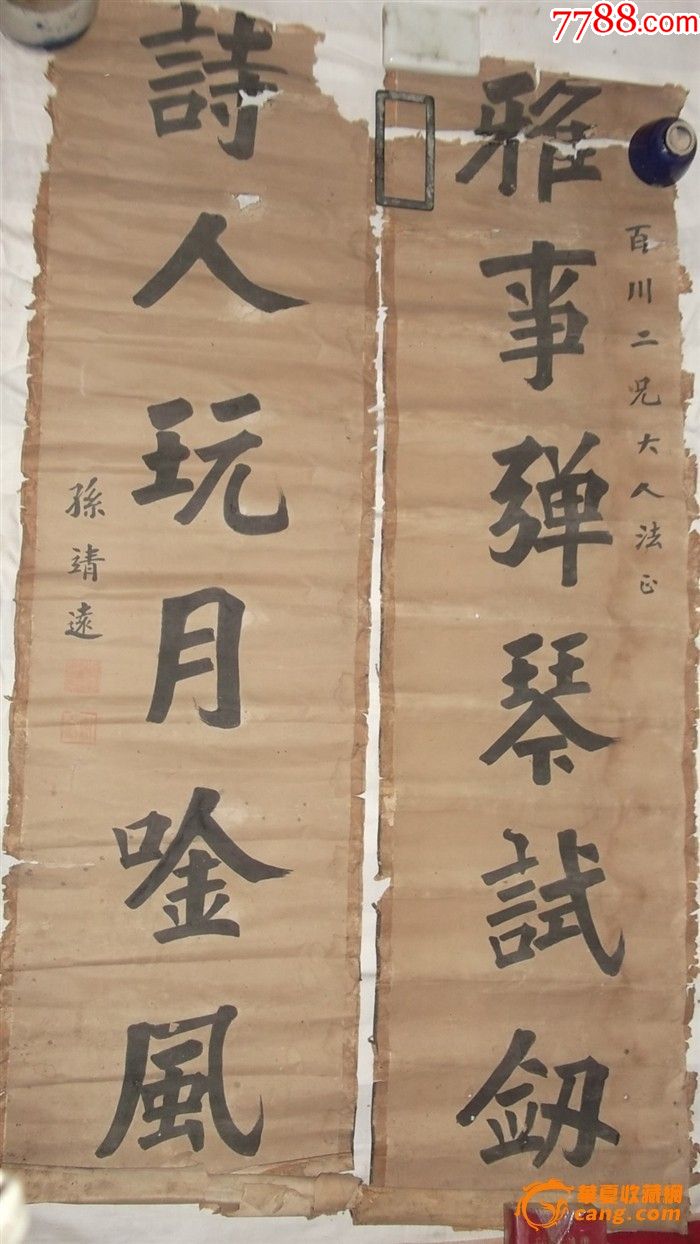 7788.com
百川二兄大人法正
雅事弹琴試劔
詩人玩月唫風
孫靖遠
華夏收藏網
cang.com